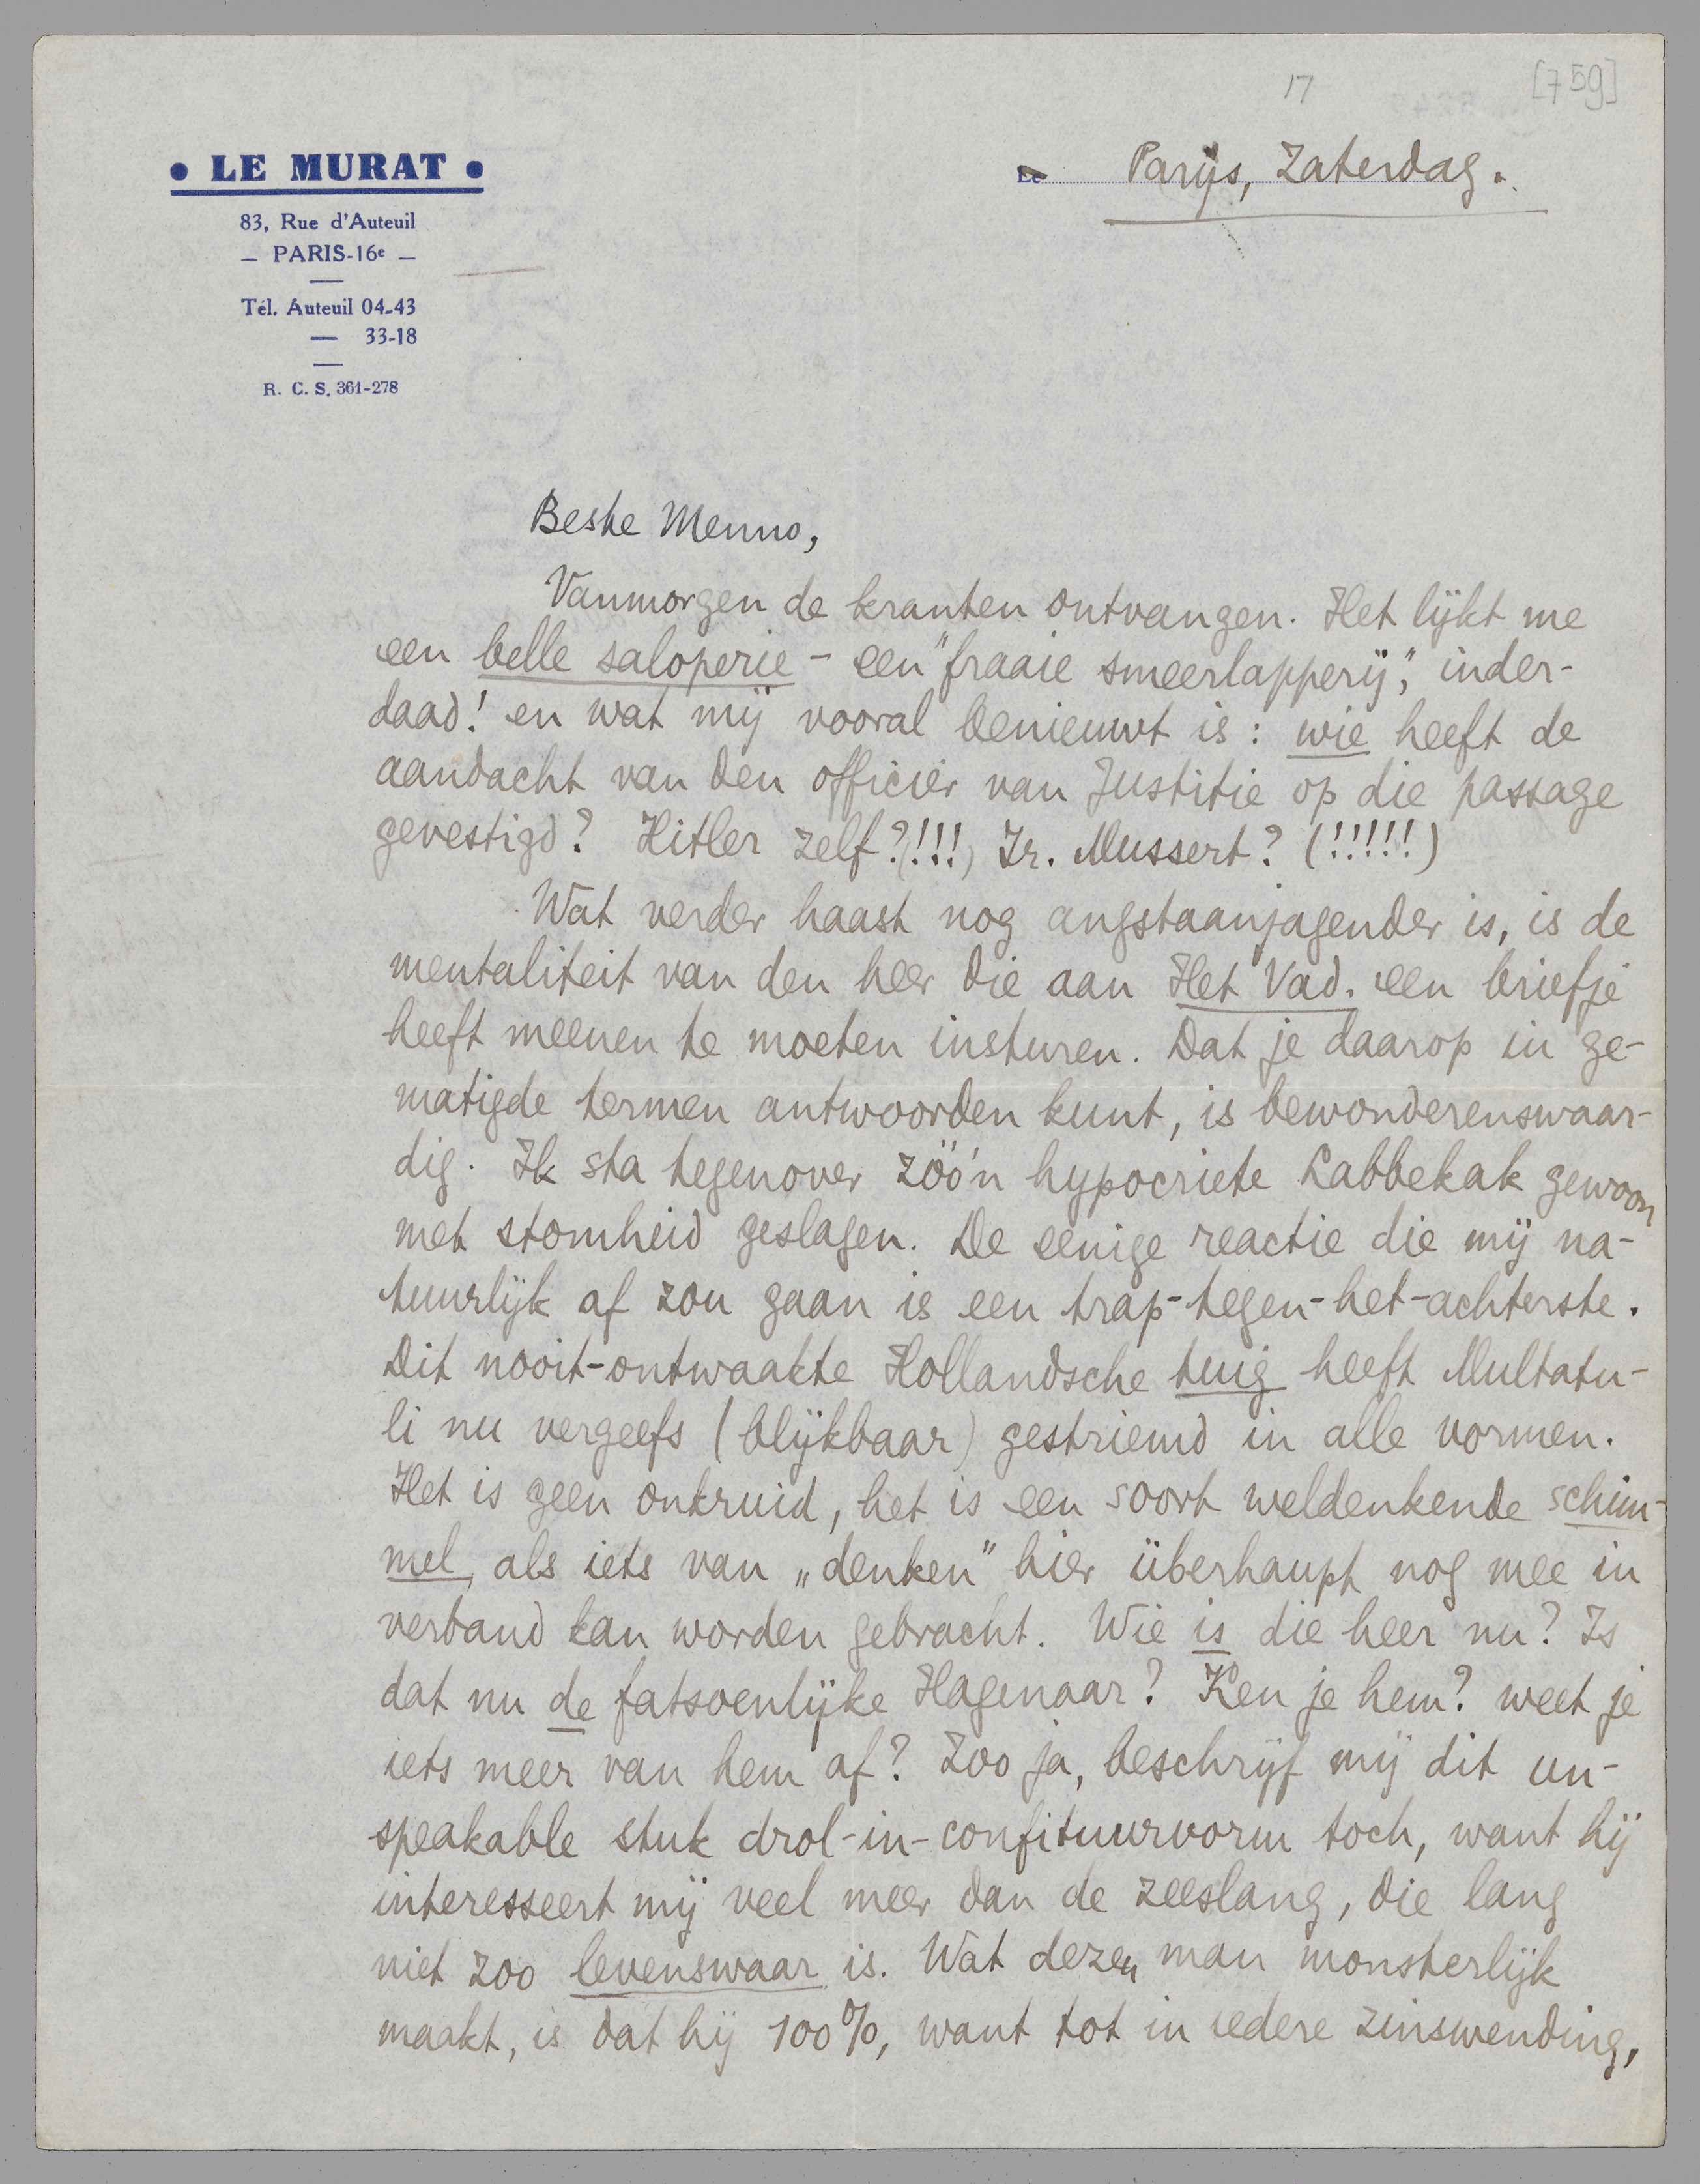 17
[759]
• LE MURAT •
83, Rue d'Auteuil
— PARIS-16e —
Tél. Auteuil 04-43
— 33-18
R. C. S. 361-278
Le Parijs, Zaterdag.
Beste Menno,
Vanmorgen de kranten ontvangen. Het lijkt me
een belle saloperie - een "fraaie smeerlapperij", inder-
daad! en wat mij vooral benieuwt is: wie heeft de
aandacht van den officier van Justitie op die passage
gevestigd? Hitler zelf?(!!!) Ir. Mussert? (!!!!!)
Wat verder haast nog angstaanjagender is, is de
mentaliteit van den heer die aan Het Vad. een briefje
heeft meenen te moeten insturen. Dat je daarop in ge-
matigde termen antwoorden kunt, is bewonderenswaar-
dig. Ik sta tegenover zóó'n hypocriete Labbekak gewoon
met stomheid geslagen. De eenige reactie die mij na-
tuurlijk af zou gaan is een trap-tegen-het-achterste.
Dit nooit-ontwaakte Hollandsche tuig heeft Multatu-
li nu vergeefs (blijkbaar) gestriemd in alle vormen.
Het is geen onkruid, het is een soort weldenkende schim-
mel, als iets van „denken" hier überhaupt nog mee in
verband kan worden gebracht. Wie is die heer nu? Is
dat nu de fatsoenlijke Hagenaar? Ken je hem? weet je
iets meer van hem af? Zoo ja, beschrijf mij dit un-
speakable stuk drol-in-confituurvorm toch, want hij
interesseert mij veel meer dan de zeeslang, die lang
niet zoo levenswaar is. Wat dezen man monsterlijk
maakt, is dat hij 100%, want tot in iedere zinswending,